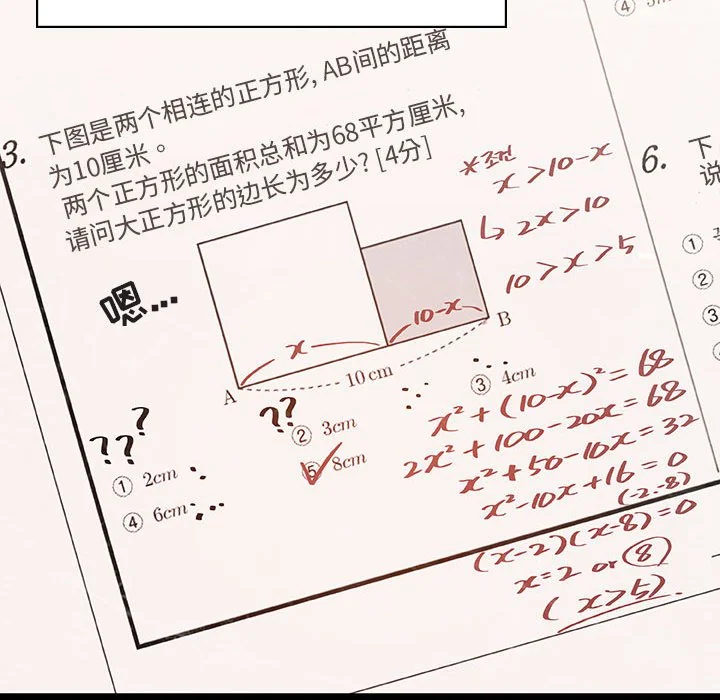 ④ 5
3. 下图是两个相连的正方形, AB间的距离
为10厘米。
两个正方形的面积总和为68平方厘米,
请问大正方形的边长为多少? [4分]
*조건
x>10-x
↳ 2x>10
10>x>5
嗯...
x
10-x
A
B
10 cm
???
??
① 2cm
② 3cm
③ 4cm
④ 6cm
⑤ 8cm
x²+(10-x)²=68
2x²+100-20x=68
x²+50-10x=32
x²-10x+16=0
(-2.-8)
(x-2)(x-8)=0
x=2 or 8
(x>5).
6. 下
说
①
②
③